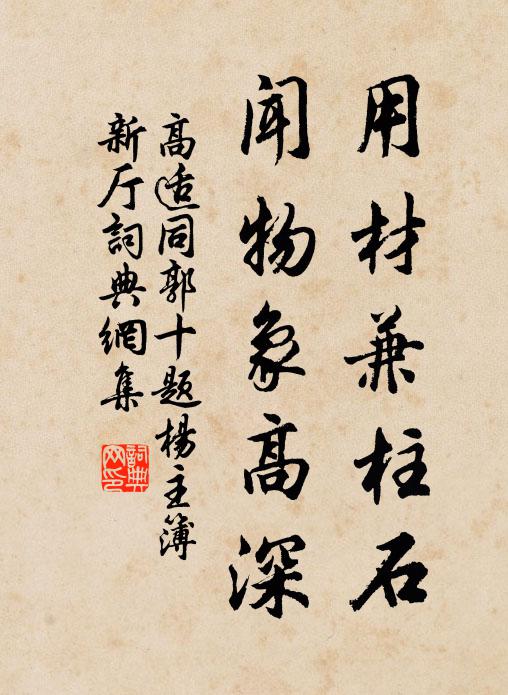 用材兼柱石
闻物象高深
高适同郭十题楊主簿
新厅詞典網集
詞典
网印